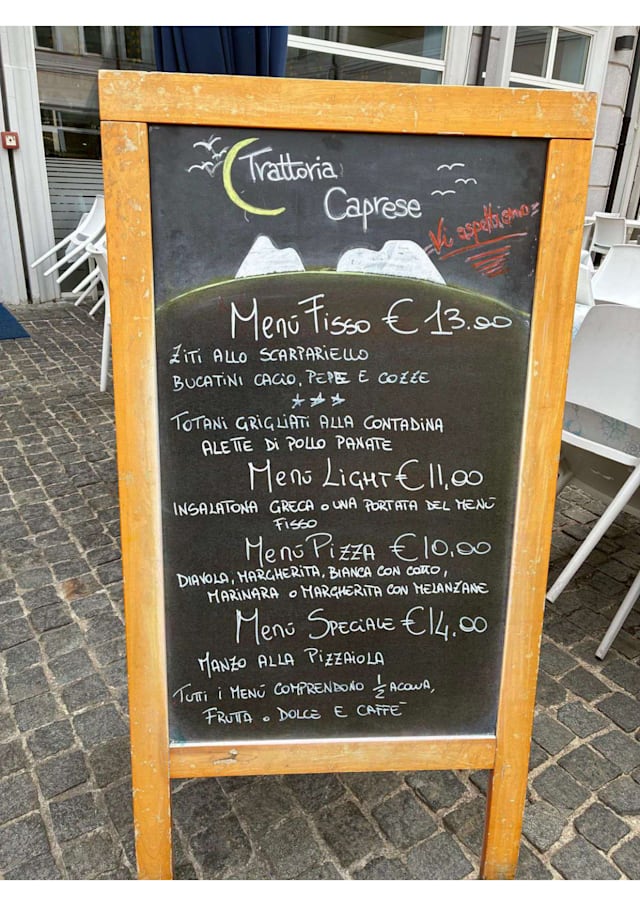 Trattoria
Caprese
Vi aspettiamo
Menù Fisso € 13.00
ZITI ALLO SCARPARIELLO
BUCATINI CACIO, PEPE E COZZE
***
TOTANI GRIGLIATI ALLA CONTADINA
ALETTE DI POLLO PANATE
Menù Light € 11,00
INSALATONA GRECA o UNA PORTATA DEL MENÙ
FISSO
Menù Pizza € 10.00
DIAVOLA, MARGHERITA, BIANCA CON COTTO,
MARINARA o MARGHERITA CON MELANZANE
Menù Speciale € 14.00
MANZO ALLA PIZZAIOLA
TUTTI I MENÙ COMPRENDONO 1/2 ACQUA,
FRUTTA o DOLCE E CAFFÈ